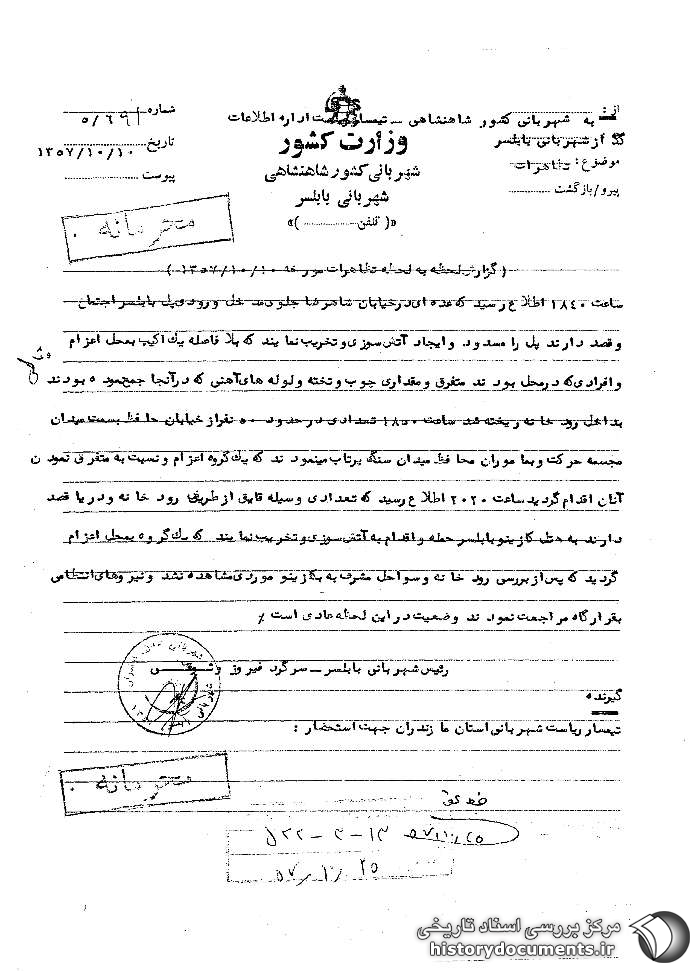 از:
به شهربانی کشور شاهنشاهی ـ تیمسار ریاست اداره اطلاعات
از شهربانی بابلسر
موضوع: تظاهرات
پیرو/بازگشت
وزارت کشور
شهربانی کشور شاهنشاهی
شهربانی بابلسر
«( تلفن )»
شماره ۵/۶۹۱
تاریخ ۱۳۵۷/۱۰/۱۰
پیوست
محرمانه
( گزارش لحظه به لحظه تظاهرات مورخه ۱۳۵۷/۱۰/۱۰ )
ساعت ۱۸۴۰ اطلاع رسید که عده ای در خیابان شاهرضا جلو مدخل ورودی پل بابلسر اجتماع
و قصد دارند پل را مسدود و ایجاد آتش سوزی و تخریب نمایند که بلافاصله یک اکیپ بمحل اعزام
و افرادی که در محل بودند متفرق و مقداری چوب و تخته و لوله های آهنی که در آنجا جمع نموده بودند
بداخل رودخانه ریخته شد ساعت ۱۸۵۰ تعدادی در حدود ۵۰ نفر از خیابان حافظ بسمت میدان
مجسمه حرکت و بماموران محافظ میدان سنگ پرتاب مینمودند که یک گروه اعزام و نسبت به متفرق نمودن
آنان اقدام گردید ساعت ۲۰۲۰ اطلاع رسید که تعدادی وسیله قایق از طریق رودخانه و دریا قصد
دارند به هتل کازینو بابلسر حمله و اقدام به آتش سوزی و تخریب نمایند که یک گروه بمحل اعزام
گردید که پس از بررسی رودخانه و سواحل مشرف به کازینو موردی مشاهده نشد و نیروهای انتظامی
بقرارگاه مراجعت نمودند وضعیت در این لحظه عادی است ٪
رئیس شهربانی بابلسر ـ سرگرد فیروز
گیرنده
تیمسار ریاست شهربانی استان مازندران جهت استحضار :
محرمانه
۵۷/۱۰/۲۵
۵۲۲-۳-۱۳
۵۷/۱۰/۲۵
مرکز بررسی اسناد تاریخی
historydocuments.ir